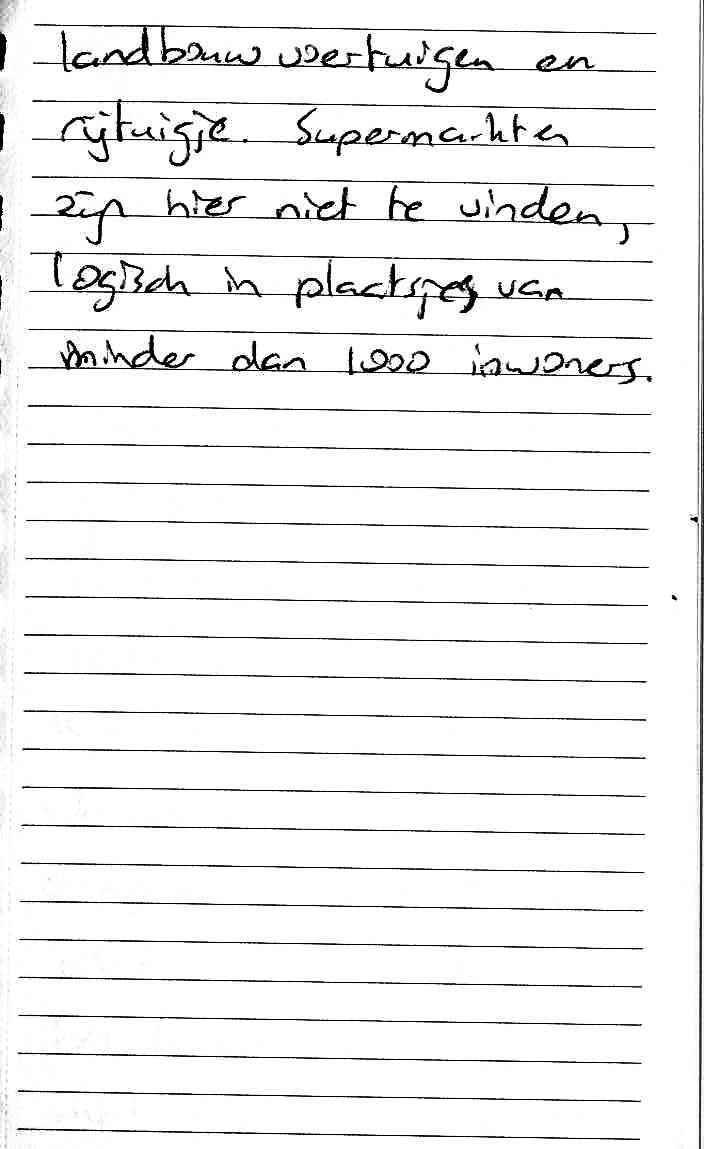 landbouwvoertuigen en
rijtuigje. Supermarkten
zijn hier niet te vinden,
logisch in plaatsjes van
minder dan 1000 inwoners.